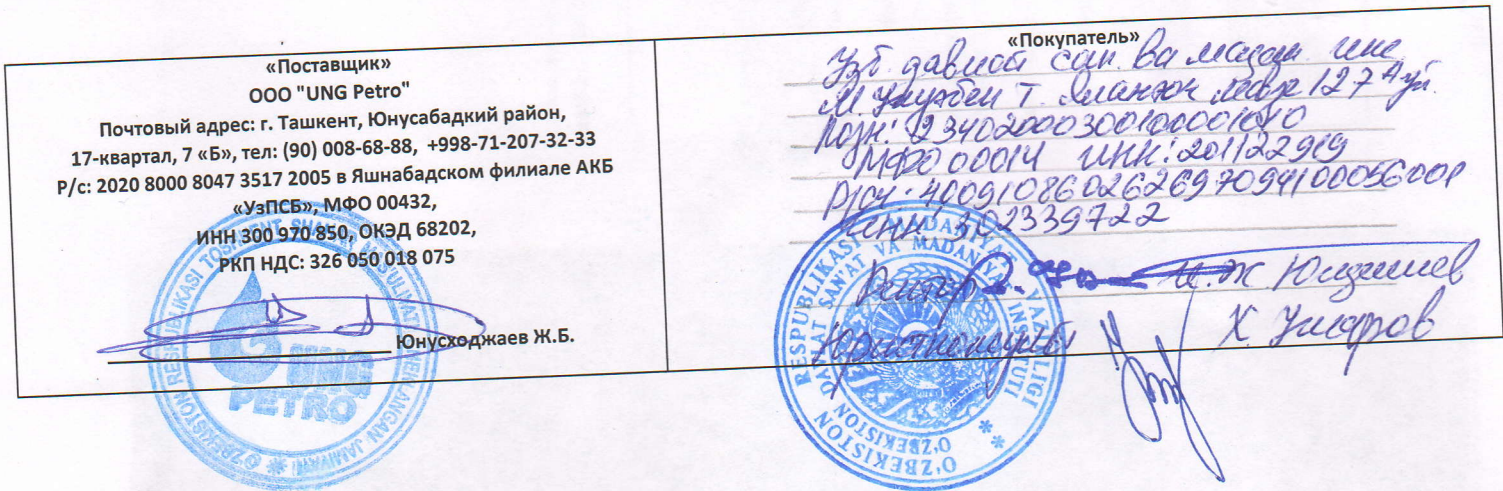 «Поставщик»
ООО "UNG Petro"
Почтовый адрес: г. Ташкент, Юнусабадкий район,
17-квартал, 7 «Б», тел: (90) 008-68-88, +998-71-207-32-33
Р/с: 2020 8000 8047 3517 2005 в Яшнабадском филиале АКБ
«УзПСБ», МФО 00432,
ИНН 300 970 850, ОКЭД 68202,
РКП НДС: 326 050 018 075
Юнусходжаев Ж.Б.
UNG
PETRO
«Покупатель»
Узб. давлат сан. ва мадан. инс
М. Улуғбек т. Яланғоч мавзе 127 А уй.
МФО 00014 ИНН: 201122919
ИНН 302339722
Ректор И.Ж Юлдашев
Юрисконсульт Х. Умаров
O'ZBEKISTON RESPUBLIKASI MADANIYAT VAZIRLIGI
O'ZBEKISTON DAVLAT SAN'AT VA MADANIYAT INSTITUTI